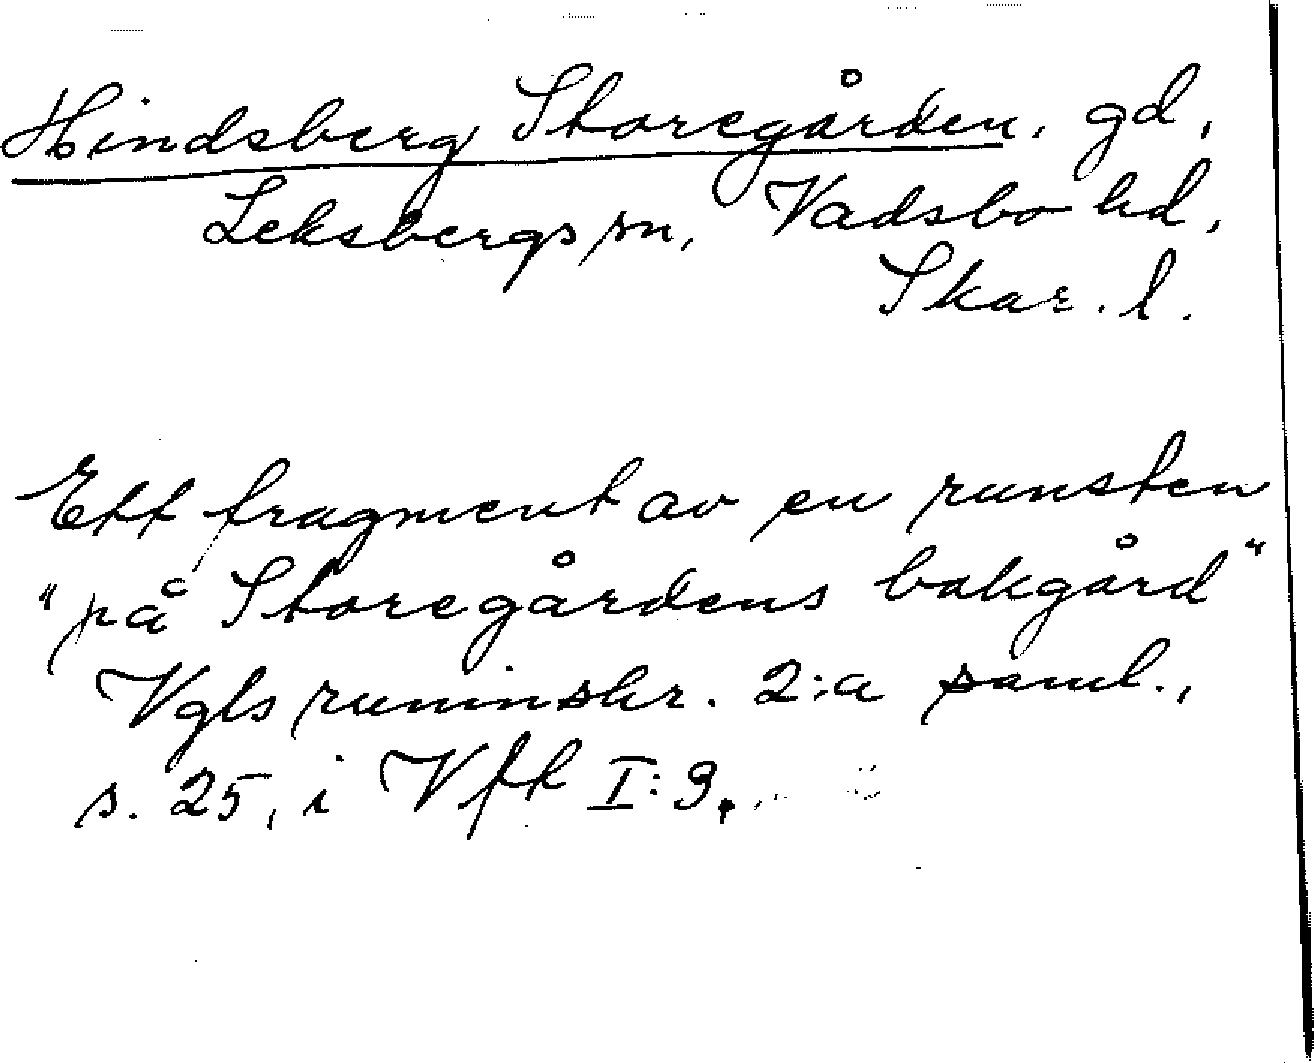 Hindsberg Storegården, gd,
Leksbergs sn, Vadsbo hd,
Skar. l.
Ett fragment av en runsten
"på Storegårdens bakgård"
Vgls runinskr. 2:a saml.,
s. 25, i Vft I:9.